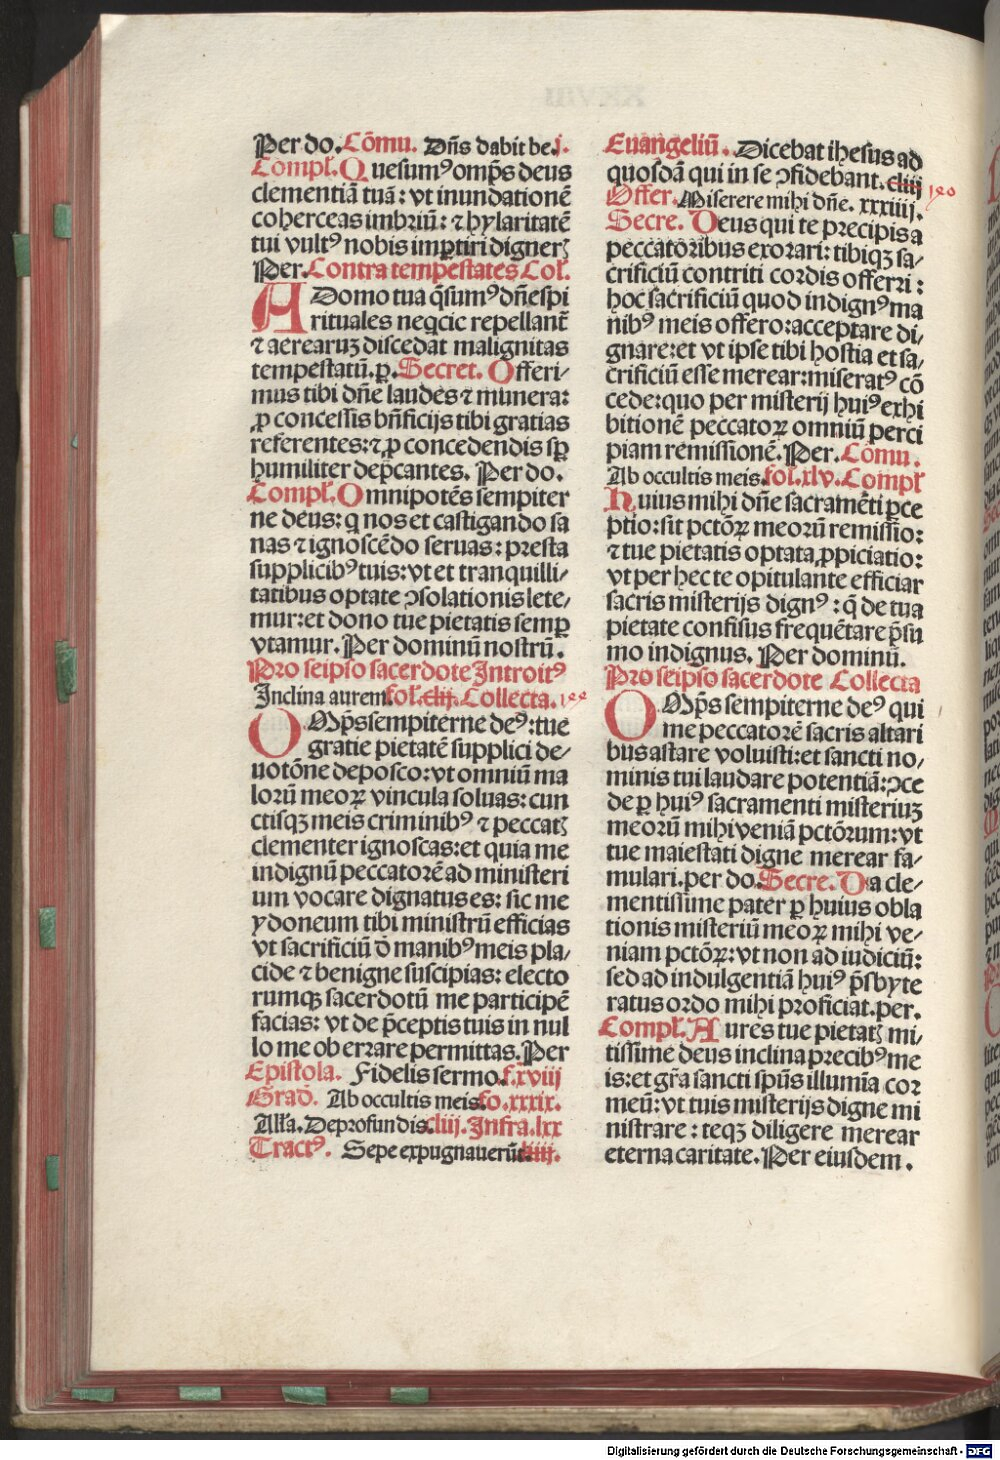 Per do. Cōmu. Dn̄s dabit be. j.
Compl̄. Quesumꝰ omp̄s deus
clementiā tuā: vt inundationē
coherceas imbriū: ⁊ hylaritatē
tui vultꝰ nobis imꝑtiri digneꝝ
Per. Contra tempestates Col̄.
ADomo tua q̄sumꝰ dn̄e spi
rituales neqcie repellant̄
⁊ aerearuꝫ discedat malignitas
tempestatū. ꝑ. Secret. Offeri⸗
mus tibi dn̄e laudes ⁊ munera:
ꝓ concessis bn̄ficijs tibi gratias
referentes: ⁊ ꝓ concedendis sꝑ
humiliter dep̄cantes. Per do.
Compl̄. Omnipotēs sempiter
ne deus: q nos et castigando sa
nas ⁊ ignoscēdo seruas: presta
supplicibꝰ tuis: vt et tranquilli⸗
tatibus optate ↄsolationis lete⸗
mur: et dono tue pietatis semꝑ
vtamur. Per dominū nostrū.
Pro seipso sacerdote Introitꝰ
Inclina aurem. fol. clij. Collecta.
OMp̄s sempiterne deꝰ: tue
gratie pietatē supplici de⸗
uotōne deposco: vt omniū ma
lorū meoꝝ vincula soluas: cun
ctisqꝫ meis criminibꝰ ⁊ peccatꝭ
clementer ignoscas: et quia me
indignū peccatorē ad ministeri
um vocare dignatus es: sic me
ydoneum tibi ministrū efficias
vt sacrificiū ō manibꝰ meis pla⸗
cide ⁊ benigne suscipias: electo
rumqꝫ sacerdotū me participē
facias: vt de p̄ceptis tuis in nul
lo me ob errare permittas. Per
Epistola. Fidelis sermo. f. xviij
Grad̄. Ab occultis meis. fo. xxxix.
All̄a. De profundis. cliij. Infra. lxx
Tractꝰ. Sepe expugnauerūt.
Euangeliū. Dicebat ihesus ad
quosdā qui in se ↄfidebant. cliij
Offer. Miserere mihi dn̄e. xxxiiij.
Secre. Deus qui te precipis a
peccatoribus exorari: tibiqꝫ sa⸗
crificiū contriti cordis offerri:
hoc sacrificiū quod indignꝰ ma
nibꝰ meis offero: acceptare di⸗
gnare: et vt ipse tibi hostia et sa⸗
crificiū esse merear: miseratꝰ cō
cede: quo per misterij huiꝰ exhi
bitionē peccatoꝝ omniū perci
piam remissionē. Per. Cōmu.
Ab occultis meis. fol. xlv. Compl̄
Huius mihi dn̄e sacramēti ꝑce
ptio: sit pctōꝝ meorū remissio:
⁊ tue pietatis optata ꝓpiciatio:
vt per hec te opitulante efficiar
sacris misterijs dignꝰ: q̄ de tua
pietate confisus frequētare p̄su
mo indignus. Per dominū.
Pro seipso sacerdote Collecta
OMp̄s sempiterne deꝰ qui
me peccatorē sacris altari
bus astare voluisti: et sancti no⸗
minis tui laudare potentiā: ↄce
de ꝑ huiꝰ sacramenti misteriuꝫ
meorū mihi veniā pctōrum: vt
tue maiestati digne merear fa⸗
mulari. per do. Secre. Da cle⸗
mentissime pater ꝑ huius obla
tionis misteriū meoꝝ mihi ve⸗
niam pctōꝝ: vt non ad iudiciū:
sed ad indulgentiā huiꝰ p̄sbyte
ratus ordo mihi proficiat. per.
Compl̄. Aures tue pietatꝭ mi⸗
tissime deus inclina precibꝰ me
is: et gr̄a sancti sp̄us illumīa cor
meū: vt tuis misterijs digne mi
nistrare: teqꝫ diligere merear
eterna caritate. Per eiusdem.
Digitalisierung gefördert durch die Deutsche Forschungsgemeinschaft - DFG